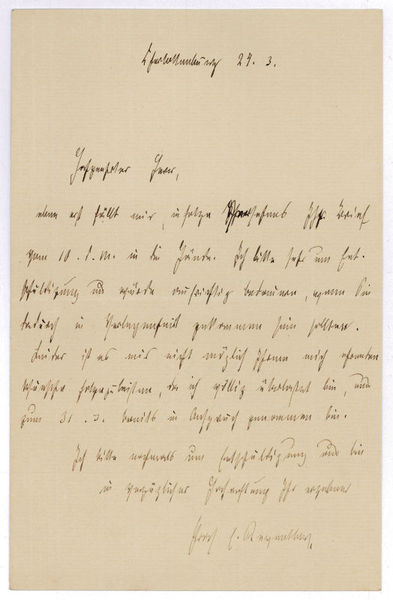 Charlottenburg 24. 3.
Hochgeehrter Herr,
eben erst fällt mir, in Folge Ihr Brief
vom 10. d. M. in die Hände. Ich bitte sehr um Ent-
schuldigung und würde aufrichtig bedauern, wenn Sie
dadurch in Verlegenheit gekommen sein sollten.
Leider ist es mir nicht möglich Ihrem mich ehrenden
Wunsche Folge zu leisten, da ich völlig überlastet bin, und
zum 31. 3. bereits in Anspruch genommen bin.
Ich bitte nochmals um Entschuldigung und bin
in vorzüglicher Hochachtung Ihr ergebener